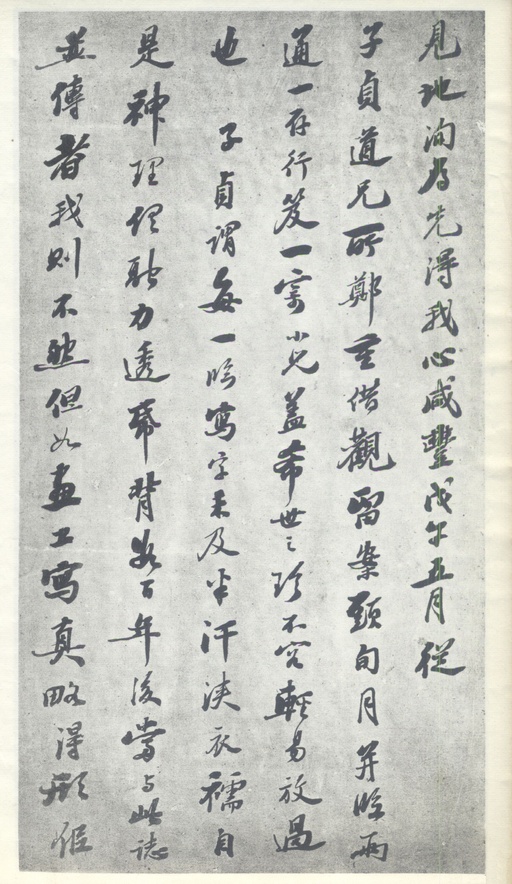 見地洵為先得我心咸豐戊午五月從
子貞道兄所鄭重借觀留案頭旬月并臨兩
通一存行笈一寄小兒蓋希世之珍不容輕易放過
也　子貞謂每一臨寫字未及半汗浹衣襦自
是神理健勁力透帋背數百年後當與此誌
並傳者我則不然但如畫工寫真略得形似